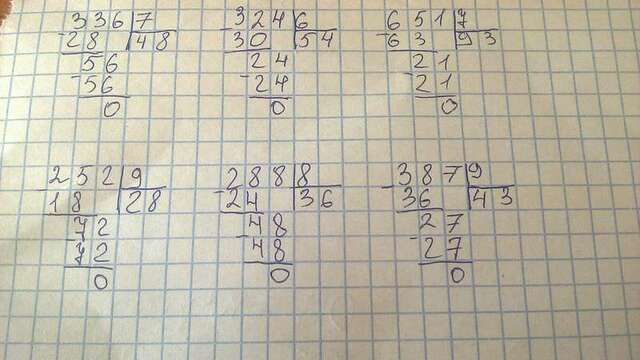 336 7
28 48
56
56
0
324 6
30 54
24
24
0
651 7
63 93
21
21
0
252 9
18 28
72
72
0
288 8
24 36
48
48
0
387 9
36 43
27
27
0